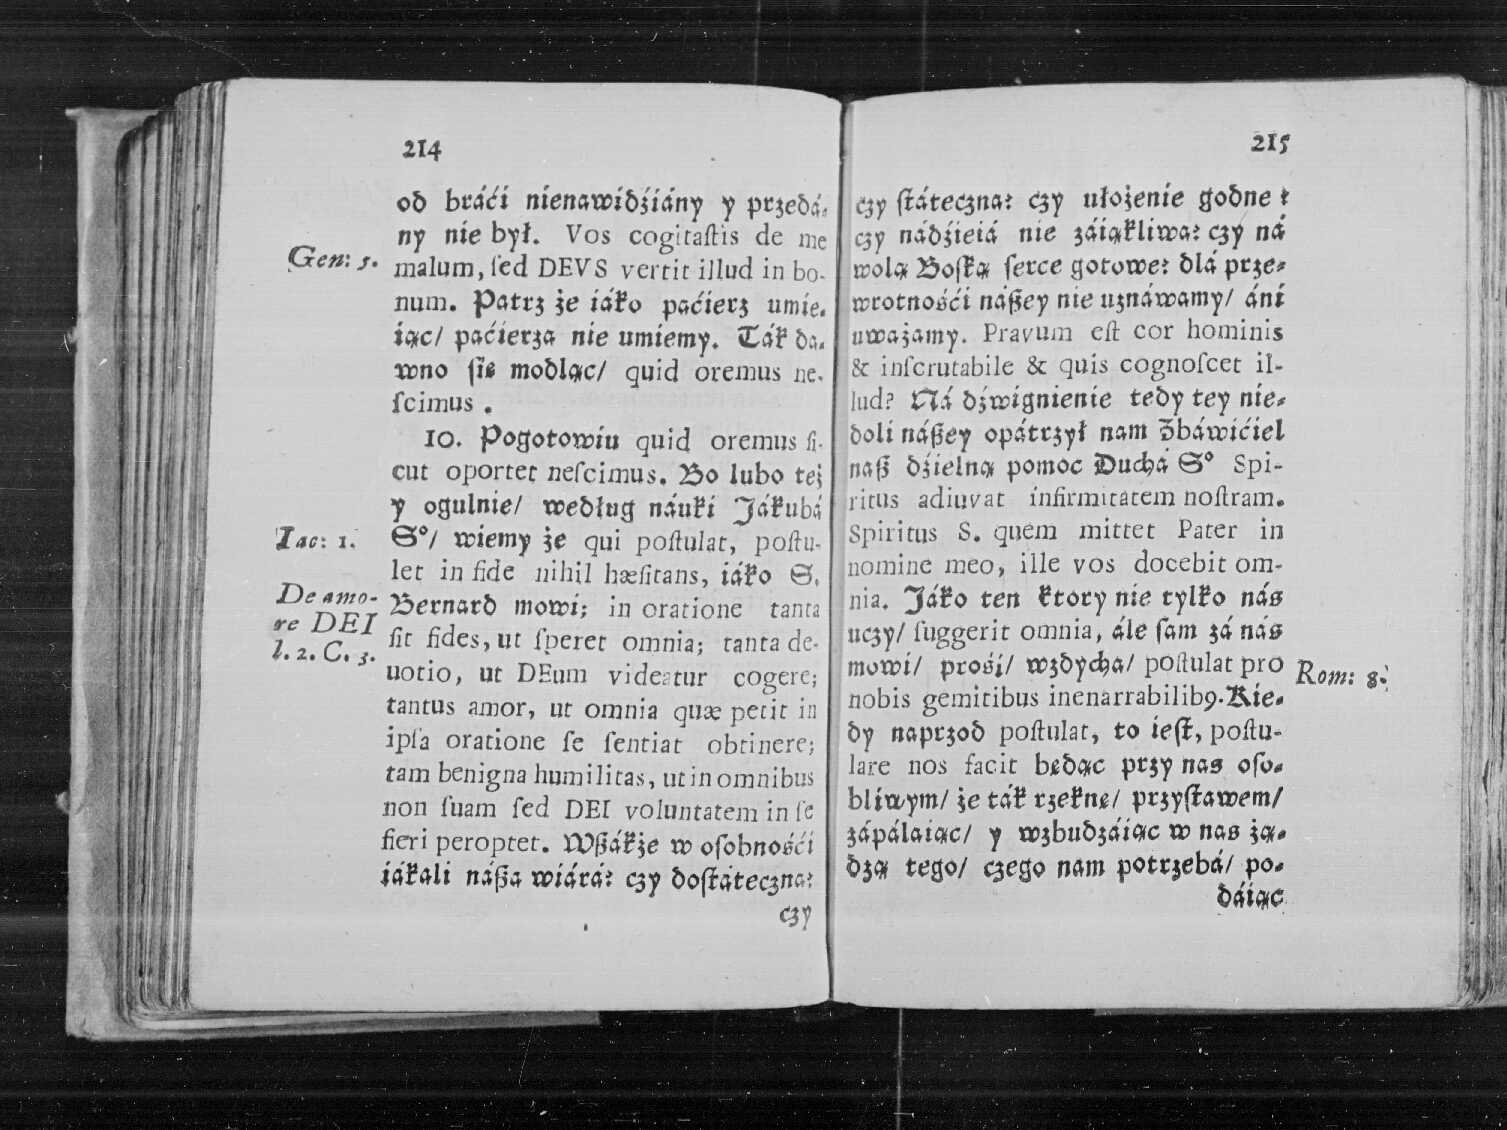 214
od bráći nienawidźiány y przedá-
ny nie był. Vos cogitaſtis de me
Gen: 5.
malum, ſed DEVS vertit illud in bo-
num. Patrz że iáko paćierz umie-
iąc/ paćierza nie umiemy. Ták da-
wno ſię modląc/ quid oremus ne-
ſcimus.
10. Pogotowiu quid oremus ſi-
cut oportet neſcimus. Bo lubo też
y ogulnie/ według náuki Jákubá
Iac: 1.
S°/ wiemy że qui poſtulat, poſtu-
let in fide nihil hæſitans, iáko S.
De amo-
re DEI
l. 2. C. 3.
Bernard mowi; in oratione tanta
ſit fides, ut ſperet omnia; tanta de-
uotio, ut DEum videatur cogere;
tantus amor, ut omnia quæ petit in
ipſa oratione ſe ſentiat obtinere;
tam benigna humilitas, ut in omnibus
non ſuam ſed DEI voluntatem in ſe
fieri peroptet. Wßákże w oſobnośći
iákali náßa wiárá? czy doſtáteczna?
czy
215
czy ſtáteczna? czy ułożenie godne?
czy nádźieiá nie záiąkliwa? czy ná
wolą Boſką ſerce gotowe? dlá prze-
wrotnośći náßey nie uznáwamy/ áni
uważamy. Pravum eſt cor hominis
& inſcrutabile & quis cognoſcet il-
lud? Ná dźwignienie tedy tey nie-
doli náßey opátrzył nam Zbáwićiel
naß dźielną pomoc Duchá S° Spi-
ritus adiuvat infirmitatem noſtram.
Spiritus S. quem mittet Pater in
nomine meo, ille vos docebit om-
nia. Jáko ten ktory nie tylko nás
uczy/ ſuggerit omnia, ále ſam zá nás
mowi/ prośi/ wzdycha/ poſtulat pro
Rom: 8.
nobis gemitibus inenarrabilibꝰ. Kie-
dy naprzod poſtulat, to ieſt, poſtu-
lare nos facit będąc przy nas oſo-
bliwym/ że ták rzeknę/ przyſtawem/
zápálaiąc/ y wzbudzáiąc w nas żą-
dzą tego/ czego nam potrzebá/ po-
dáiąc